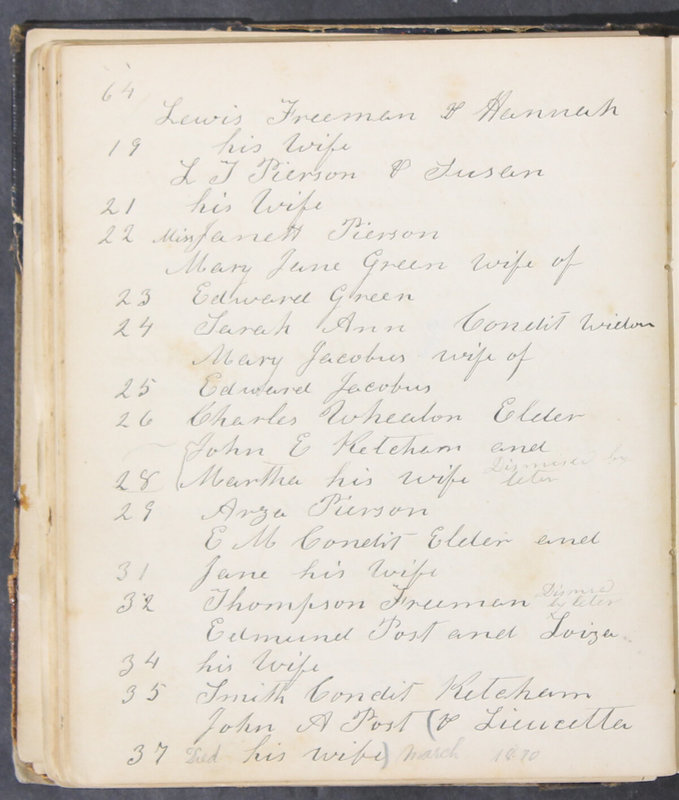 64
Lewis Freeman & Hannah
19 his Wife
L J Pierson & Susan
21 his Wife
22 Miss Janett Pierson
Mary Jane Green Wife of
23 Edward Green
24 Sarah Ann Condit Widow
Mary Jacobus wife of
25 Edward Jacobus
26 Charles Wheaton Elder
John E Ketcham and
28 Martha his wife Dismised by leter
29 Arza Pierson
E M Condit Elder and
31 Jane his Wife
32 Thompson Freeman Dismised by leter
Edmund Post and Loiza
34 his Wife
35 Smith Condit Ketcham
John A Post (& Lieucetta
37 Died his wife) March 1870